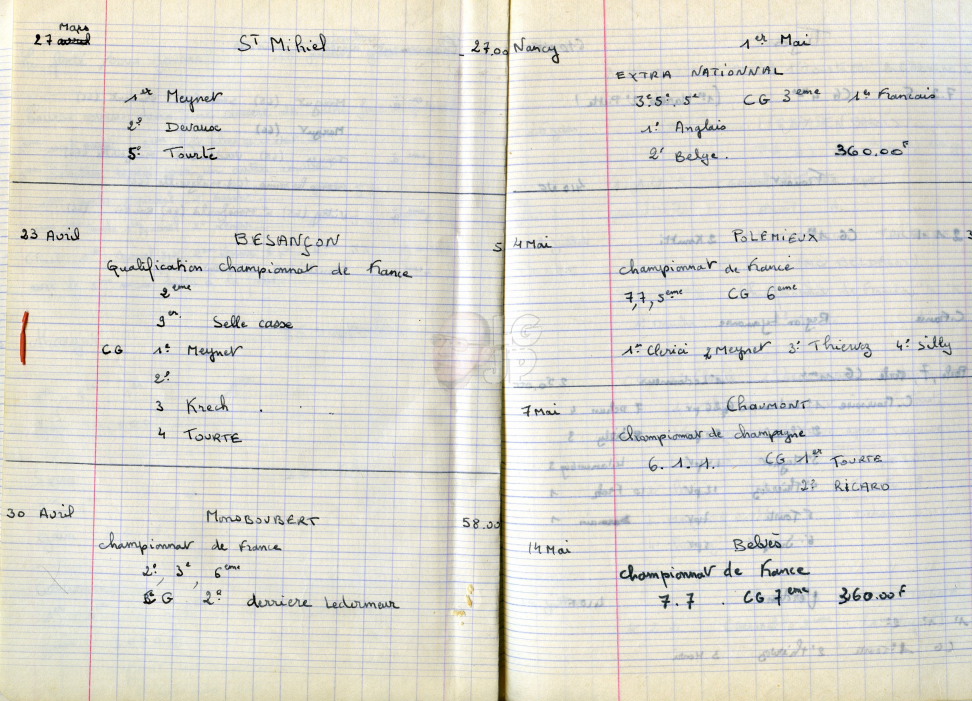 Mars
27 avril St Mihiel 27.00
1er Meynet
2e Devaux
5e Tourte
23 Avril BESANÇON 5
Qualification championnat de France
2eme
9er Selle casse
CG 1e Meynet
2e
3 Krech
4 TOURTE
30 Avril MONSBOUBERT 58.00
championnat de France
2e, 3e, 6eme
CG 2e derriere Ledermeur
Nancy 1er Mai
EXTRA NATIONNAL
3e. 5e. 5e CG 3eme 1er Francais
1e Anglais
2e Belge. 360.00F
4 Mai POLEMIEUX 3
championnat de France
7,7,5eme CG 6eme
1er Clerici 2 Meynet 3e Thierez 4e Silly
7 Mai CHAUMONT
Championnat de champagne
6. 1. 1. CG 1er TOURTE
2e RICARD
14 Mai Belvès
championnat de France
7.7. CG 7eme 360.00F